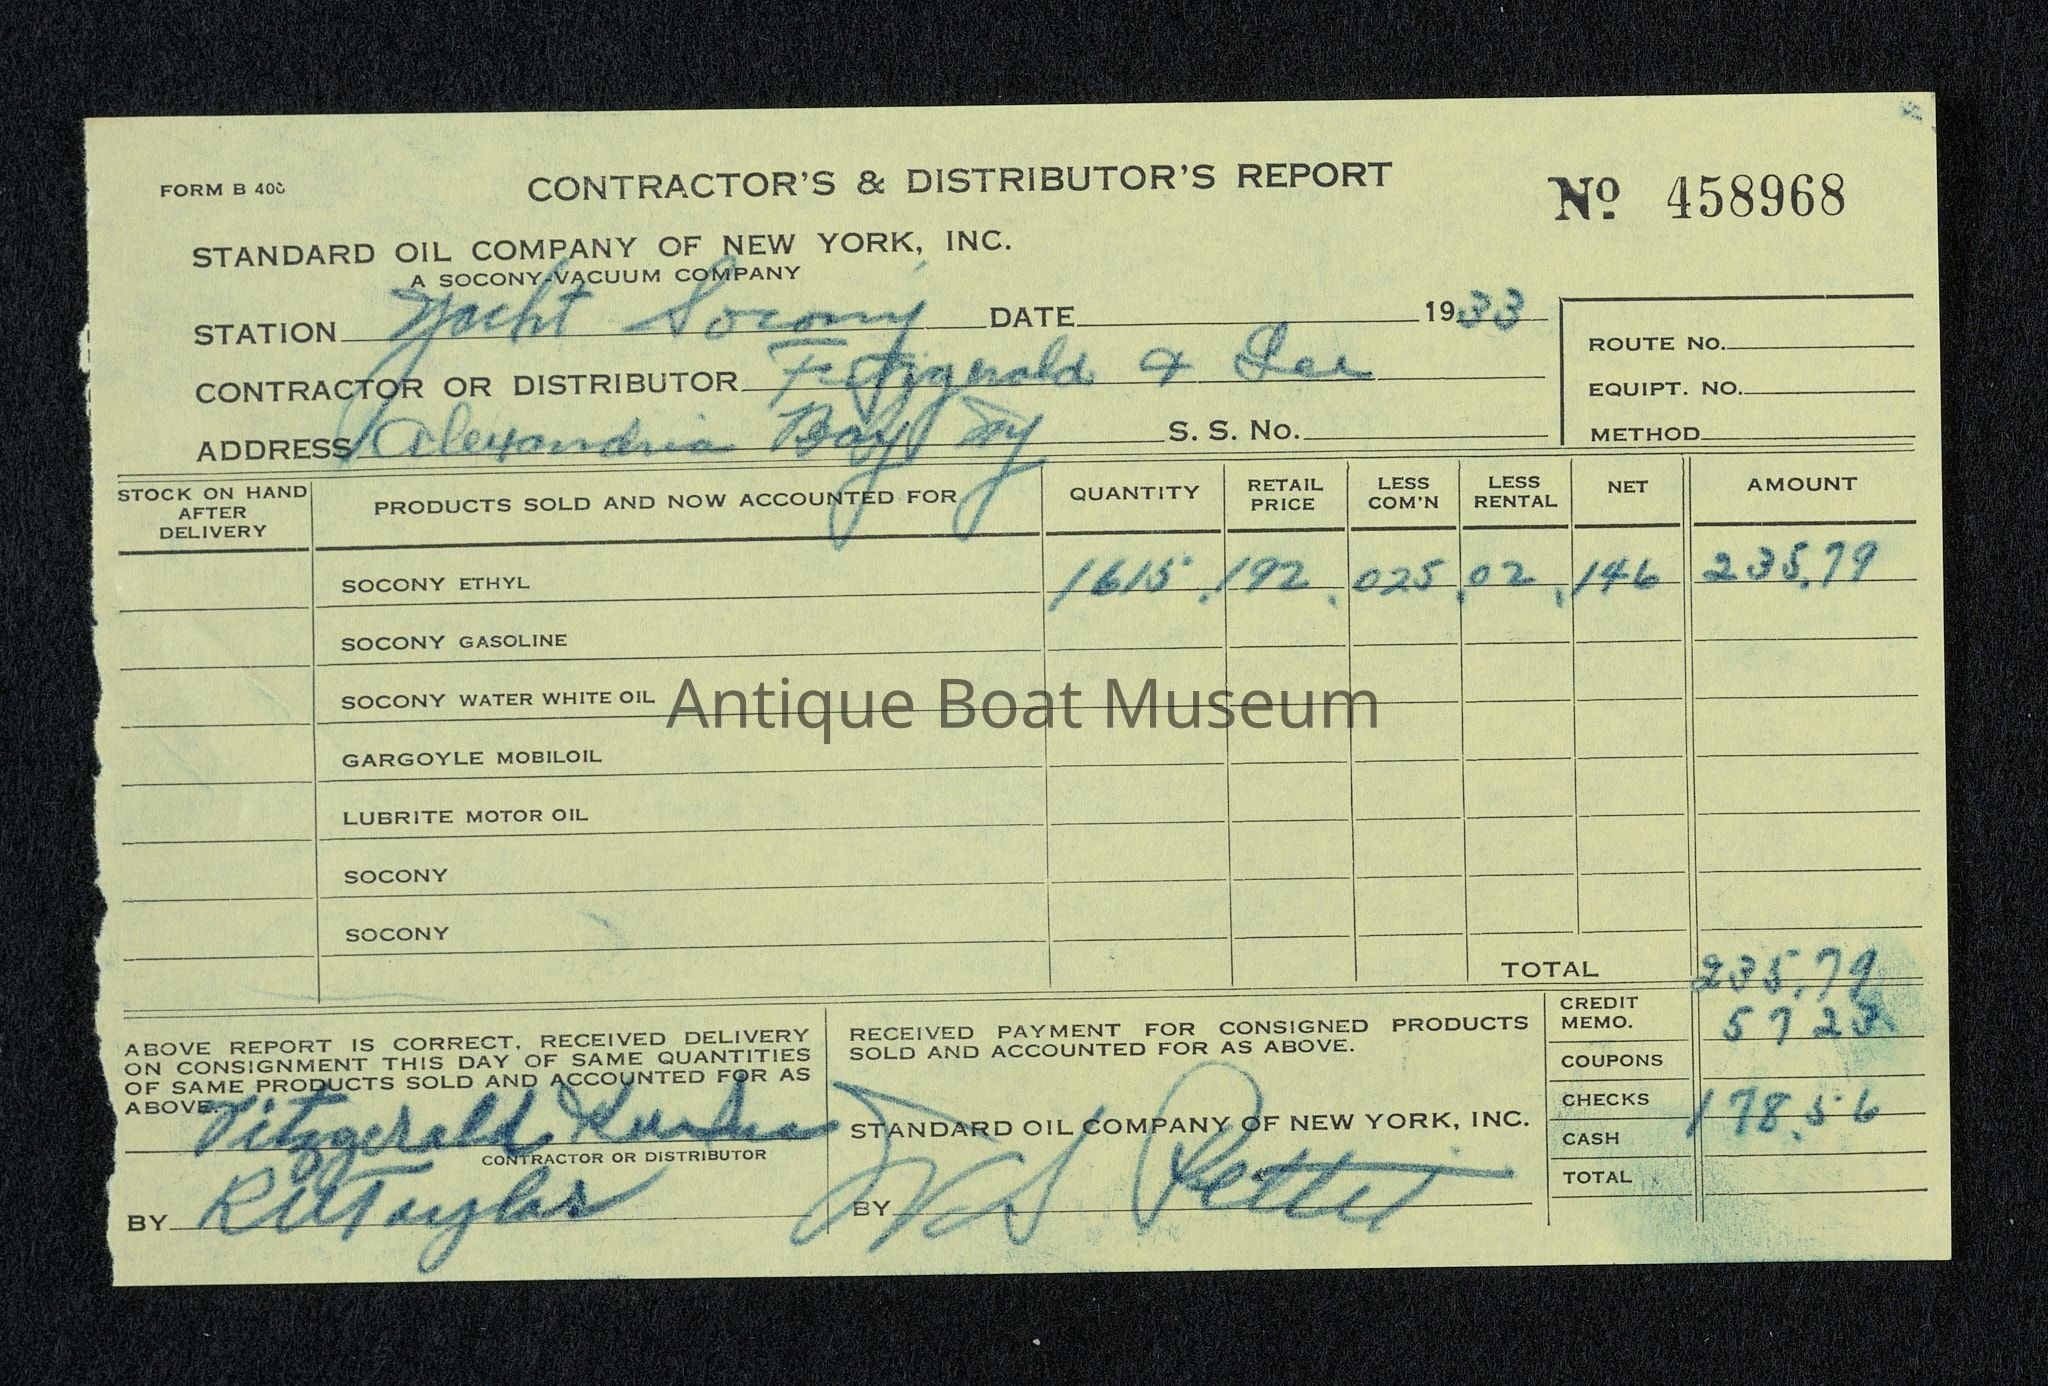 FORM B 400
CONTRACTOR'S & DISTRIBUTOR'S REPORT
No 458968
STANDARD OIL COMPANY OF NEW YORK, INC.
A SOCONY-VACUUM COMPANY
STATION Yacht Socony DATE 1933
ROUTE No.
CONTRACTOR OR DISTRIBUTOR Fitzgerald & Lee
EQUIPT. NO.
ADDRESS Alexandria Bay Ny S. S. No.
METHOD
STOCK ON HAND AFTER DELIVERY PRODUCTS SOLD AND NOW ACCOUNTED FOR QUANTITY RETAIL PRICE LESS COM'N LESS RENTAL NET AMOUNT
SOCONY ETHYL 1615 .192 .025 .02 .146 235.79
SOCONY GASOLINE
SOCONY WATER WHITE OIL
Antique Boat Museum
GARGOYLE MOBILOIL
LUBRITE MOTOR OIL
SOCONY
SOCONY
TOTAL 235.79
CREDIT MEMO. 57 23
COUPONS
CHECKS 178.56
CASH
TOTAL
ABOVE REPORT IS CORRECT, RECEIVED DELIVERY
ON CONSIGNMENT THIS DAY OF SAME QUANTITIES
OF SAME PRODUCTS SOLD AND ACCOUNTED FOR AS
ABOVE.
Fitzgerald
CONTRACTOR OR DISTRIBUTOR
BY R W Taylor
RECEIVED PAYMENT FOR CONSIGNED PRODUCTS
SOLD AND ACCOUNTED FOR AS ABOVE.
STANDARD OIL COMPANY OF NEW YORK, INC.
BY Pettit